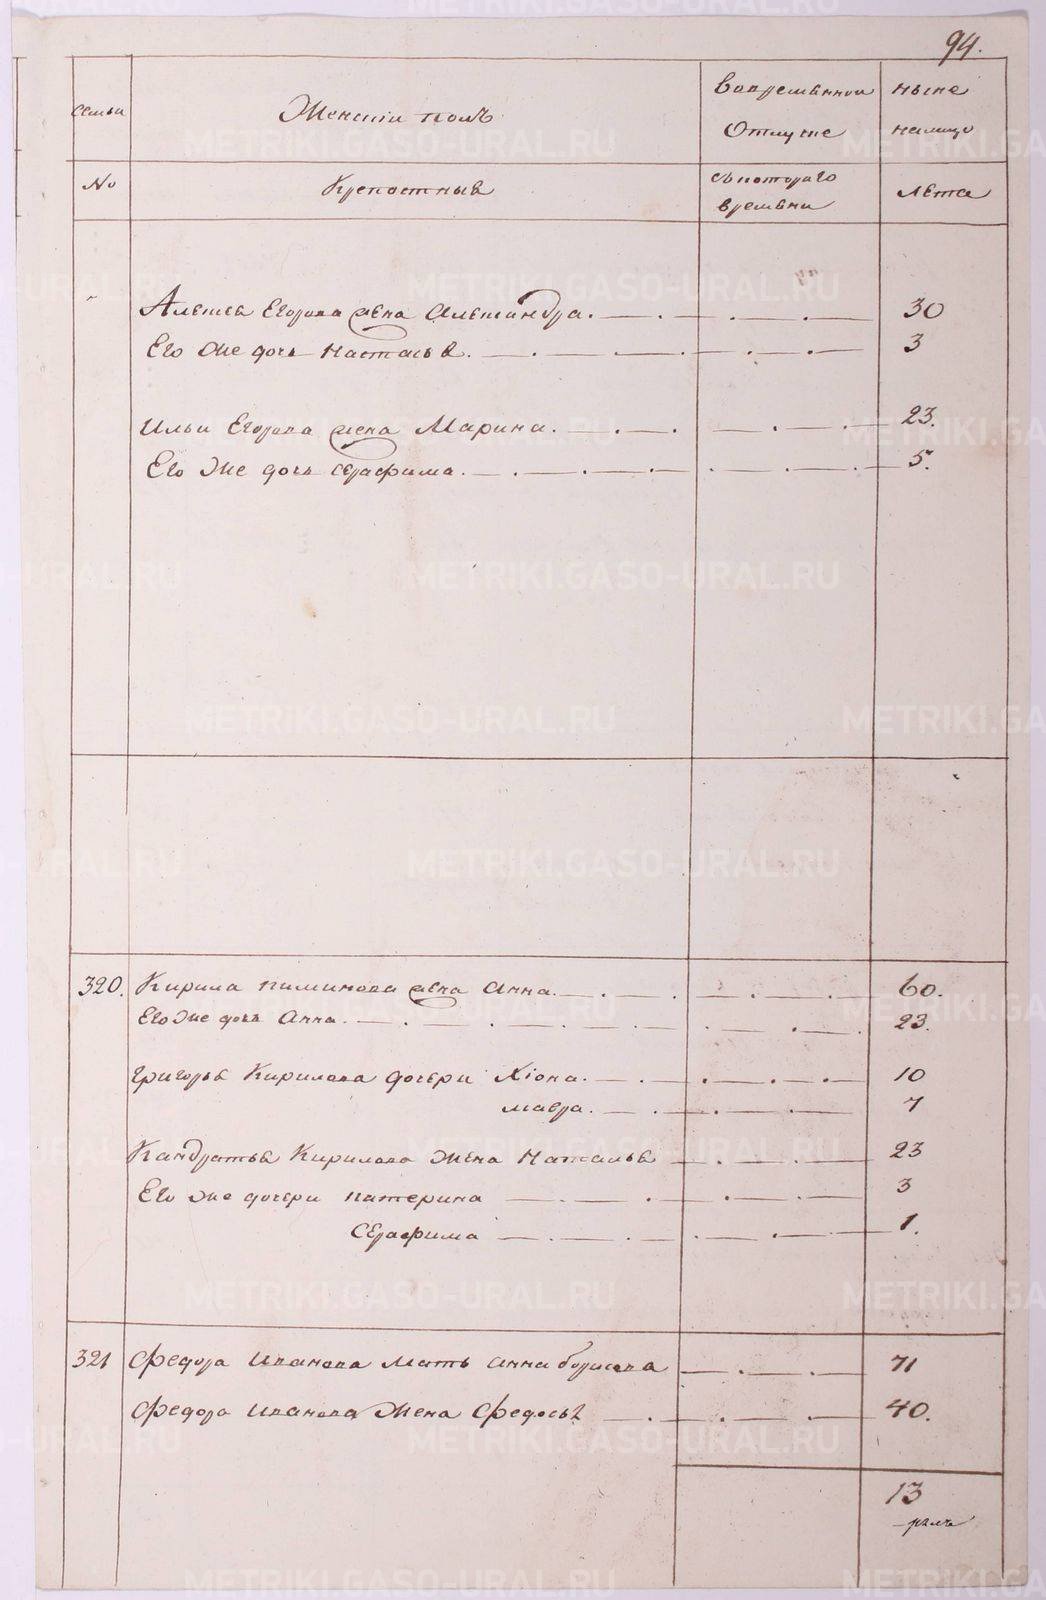 94.
семьи Женскiй полъ Вовременной ныне
Отлучке налицо
No Крепостныя съ котораго Лѣта
времени
Алексея Егорова жена Александра. 30
Его же дочь Настасья. 3
Ильи Егорова жена Марина. 23.
Его же дочь Серафима. 5.
320. Кирила Пиминова жена Анна. 60.
Его же дочь Анна. 23.
Григорья Кирилова дочери Хiона. 10
Мавра. 7
Кандратья Кирилова Жена Наталья 23
Его же дочери Катерина 3
Серафима 1.
321 Федора Иванова Мать Анна Борисова 71
Федора Иванова Жена Федосья 40.
13
METRIKI.GASO-URAL.RU